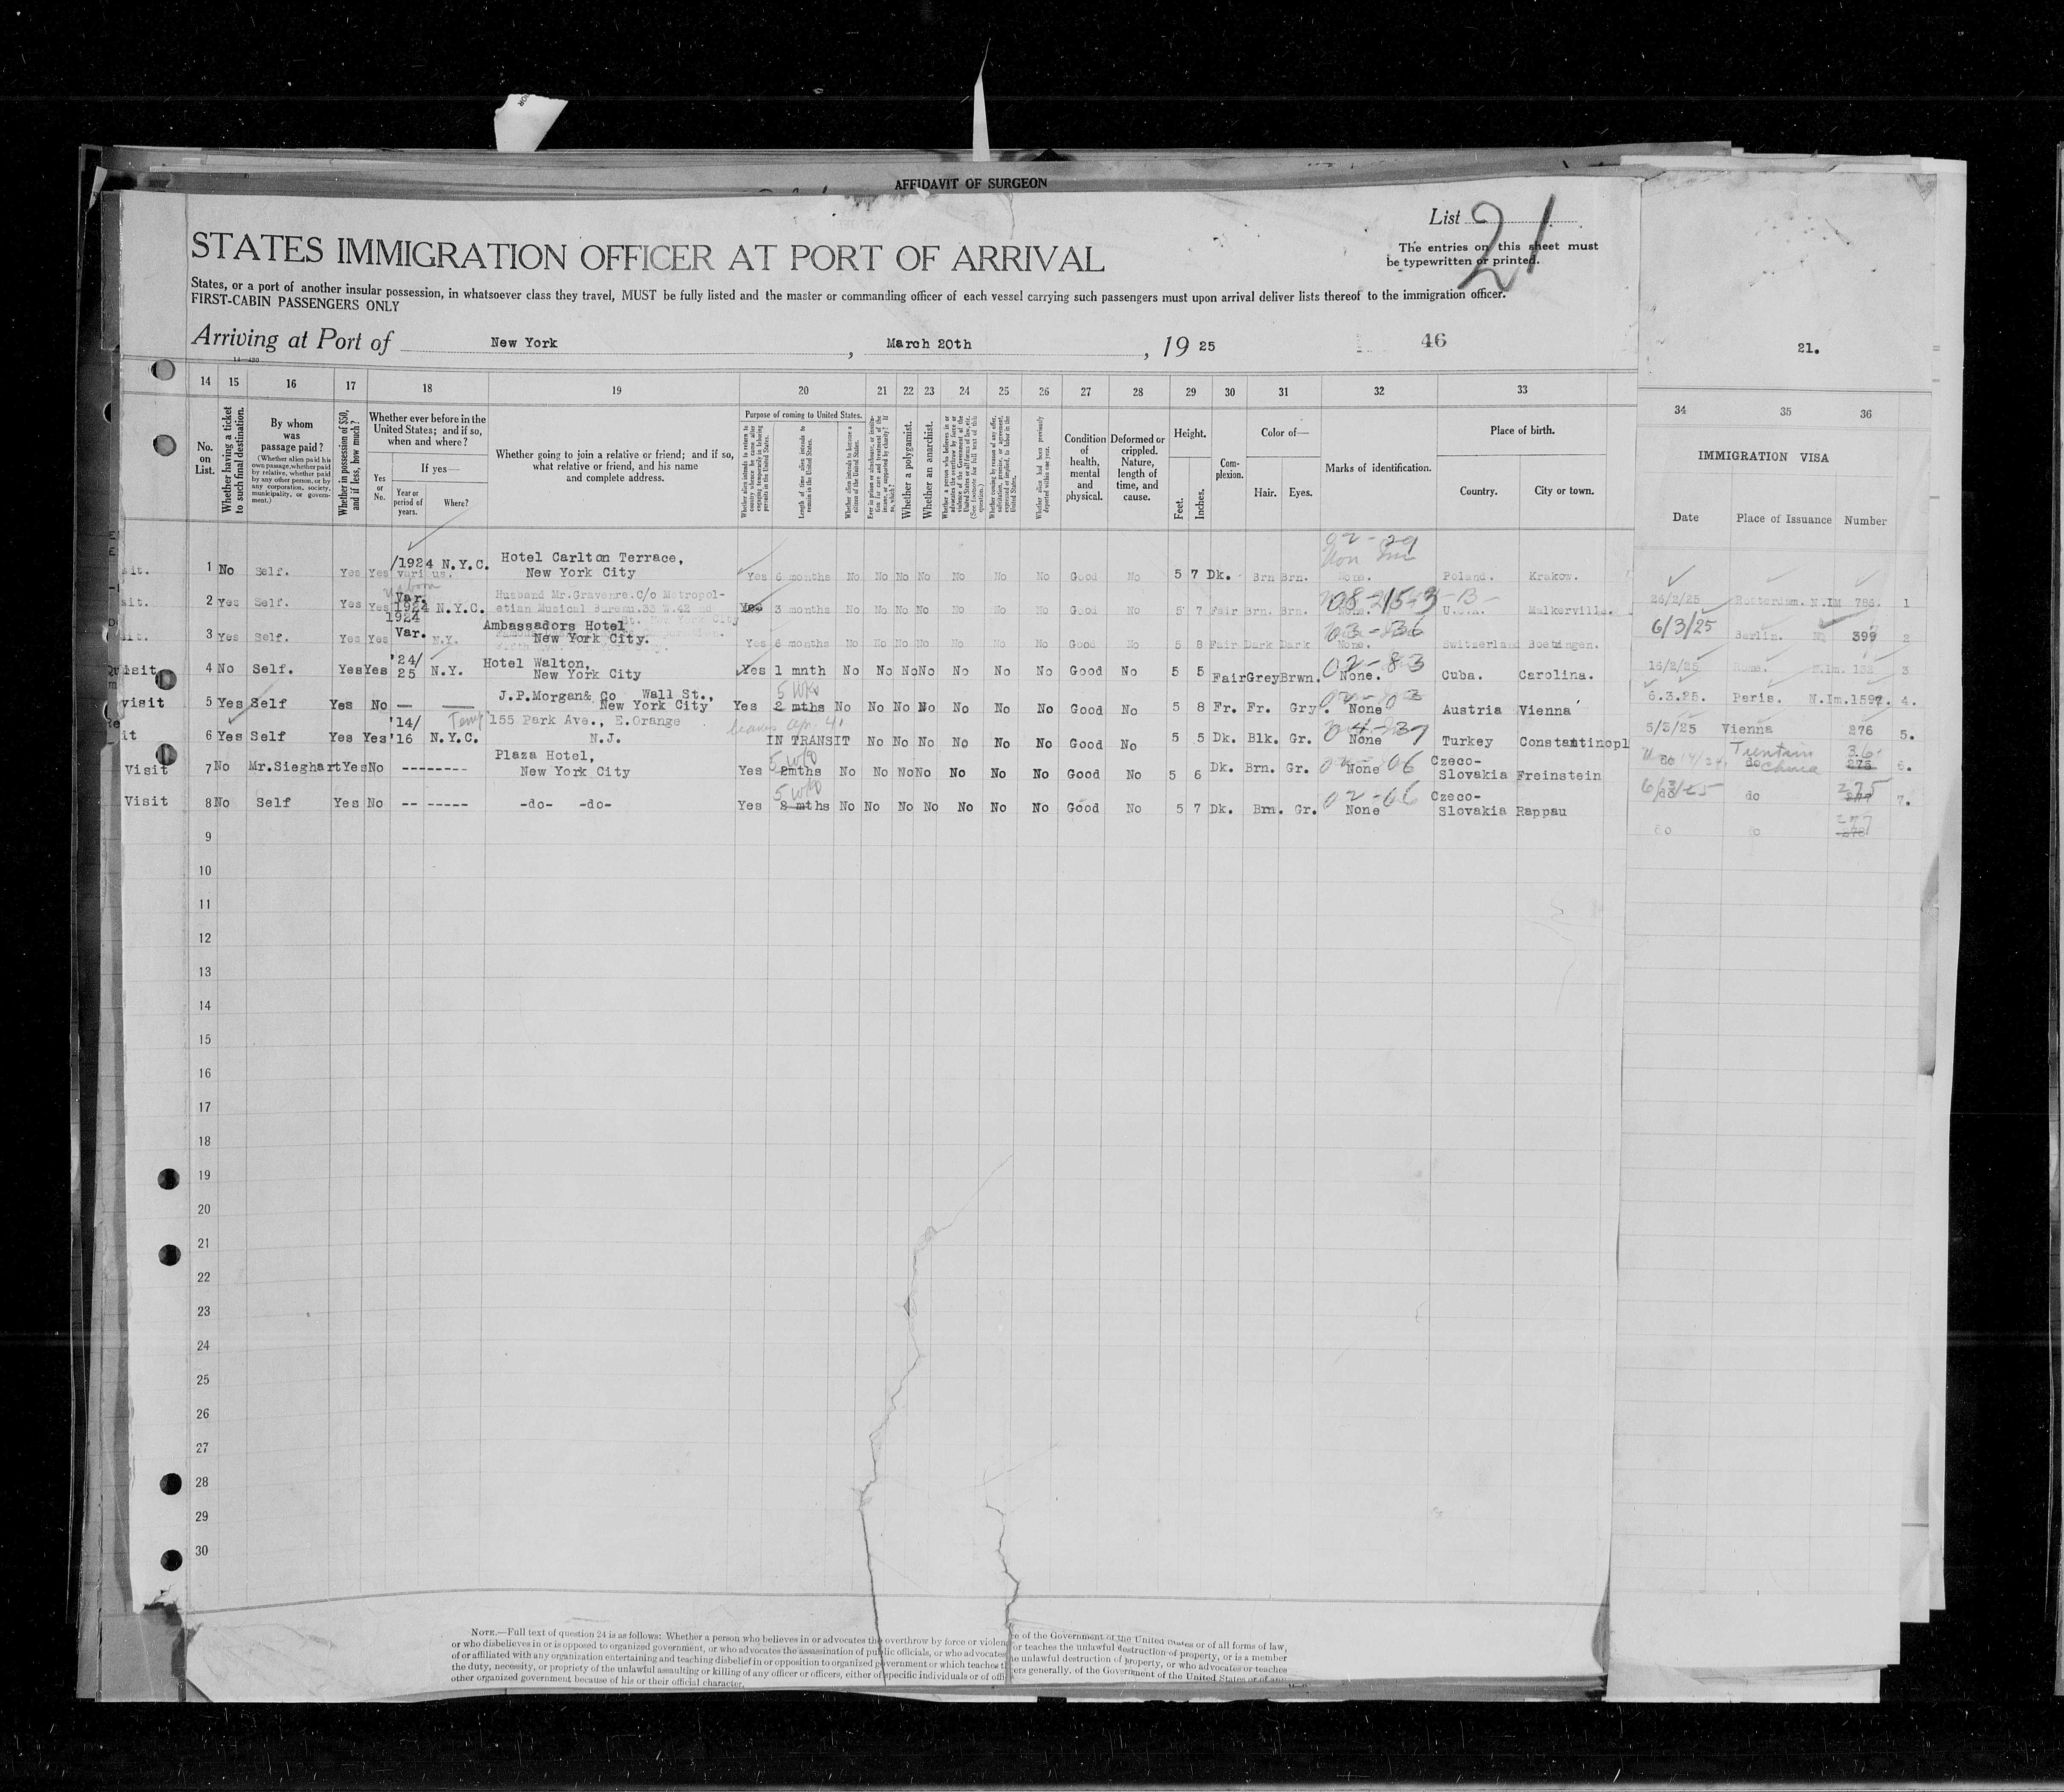 AFFIDAVIT OF SURGEON
List 21
The entries on this sheet must
be typewritten or printed.
STATES IMMIGRATION OFFICER AT PORT OF ARRIVAL
States, or a port of another insular possession, in whatsoever class they travel, MUST be fully listed and the master or commanding officer of each vessel carrying such passengers must upon arrival deliver lists thereof to the immigration officer.
FIRST-CABIN PASSENGERS ONLY
Arriving at Port of New York, March 20th, 19 25 46
21.
14 15 16 17 18 19 20 21 22 23 24 25 26 27 28 29 30 31 32 33 34 35 36
No. on List.
Whether having a ticket to such final destination.
By whom was passage paid?
(Whether alien paid his own passage, whether paid by relative, whether paid by any other person, or by any corporation, society, municipality, or government.)
Whether in possession of $50, and if less, how much?
Whether ever before in the United States; and if so, when and where?
Yes or No.
If yes—
Year or period of years.
Where?
Whether going to join a relative or friend; and if so, what relative or friend, and his name and complete address.
Purpose of coming to United States.
Length of time alien intends to remain in the United States.
Whether alien intends to become a citizen of the United States.
Whether a polygamist.
Whether an anarchist.
Whether alien had been previously deported within one year.
Condition of health, mental and physical.
Deformed or crippled. Nature, length of time, and cause.
Height.
Feet. Inches.
Complexion.
Color of—
Hair. Eyes.
Marks of identification.
Place of birth.
Country. City or town.
IMMIGRATION VISA
Date Place of Issuance Number
1 No Self. Yes Yes /1924 N.Y.C. various. Hotel Carlton Terrace, New York City Yes 6 months No No No No No No No Good No 5 7 Dk. Brn Brn. None. Poland. Krakow.
02-29
2 Yes Self. Yes Yes Var. 1924 N.Y.C. Husband Mr.Gravenre.C/o Metropoletian Musical Bureau.33 W.42 nd St. New York City Yes 3 months No No No No No No No Good No 5 7 Fair Brn. Brn. None. U.S.A. Walkerville.
26/2/25 Rotterdam. N.IM 786. 1
3 Yes Self. Yes Yes 1924 Var. N.Y. Ambassadors Hotel New York City. Yes 6 months No No No No No No No Good No 5 8 Fair Dark Dark None. Switzerland Boetingen.
03-36
6/3/25 Berlin. No 399 2
4 No Self. Yes Yes '24/25 N.Y. Hotel Walton, New York City Yes 1 mnth No No No No No No No Good No 5 5 Fair Grey Brwn. None. Cuba. Carolina.
02-83
16/2/25 Rome. N.Im. 132 3
visit 5 Yes Self Yes No — —— J.P.Morgan& Co Wall St., New York City Yes 2 mths No No No No No No No Good No 5 8 Fr. Fr. Gry. None Austria Vienna
5 wks
02-03
6.3.25. Paris. N.Im.1597. 4.
6 Yes Self Yes Yes '14/'16 N.Y.C. 155 Park Ave., E.Orange N.J. IN TRANSIT No No No No No No Good No 5 5 Dk. Blk. Gr. None Turkey Constantinopl
Temp
leaves Ap. 4
04-37
5/3/25 Vienna 276 5.
Visit 7 No Mr.Sieghart Yes No -------- Plaza Hotel, New York City Yes 2mths No No No No No No No Good No 5 6 Dk. Brn. Gr. None Czeco-Slovakia Freinstein
5 wks
02-06
do Tientsin China 36 275 6.
Visit 8 No Self Yes No -- ----- -do- -do- Yes 2 mths No No No No No No No Good No 5 7 Dk. Brn. Gr. None Czeco-Slovakia Rappau
5 wks
02-06
6/3/25 do 275 7.
do do 277
9
10
11
12
13
14
15
16
17
18
19
20
21
22
23
24
25
26
27
28
29
30
NOTE.—Full text of question 24 is as follows: Whether a person who believes in or advocates the overthrow by force or violence of the Government of the United States or of all forms of law,
or who disbelieves in or is opposed to organized government, or who advocates the assassination of public officials, or who advocates or teaches the unlawful destruction of property, or is a member
of or affiliated with any organization entertaining and teaching disbelief in or opposition to organized government or which teaches the unlawful destruction of property, or who advocates or teaches
the duty, necessity, or propriety of the unlawful assaulting or killing of any officer or officers, either of specific individuals or of officers generally, of the Government of the United States or of any
other organized government because of his or their official character.